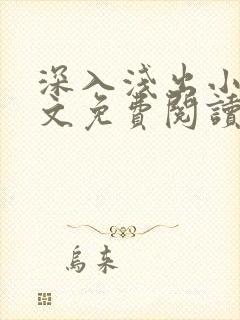 深入淺出小
文免費閱讀
烏來